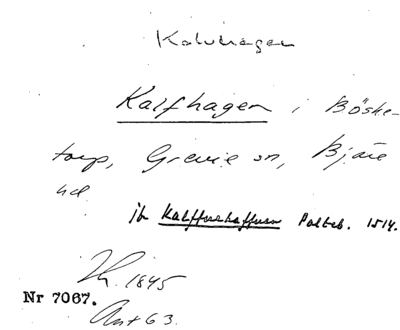 Kalvhagen
Kalfhagen i Böske-
torp, Grevie sn, Bjäre
hd
jb Kalffuehaffuen Palteb. 1514.
1845
Nr 7067.
Ant 63.